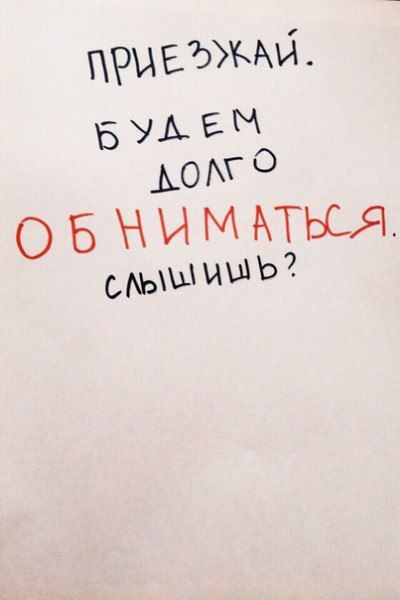 ПРИЕЗЖАЙ.
БУДЕМ
ДОЛГО
ОБНИМАТЬСЯ.
СЛЫШИШЬ?